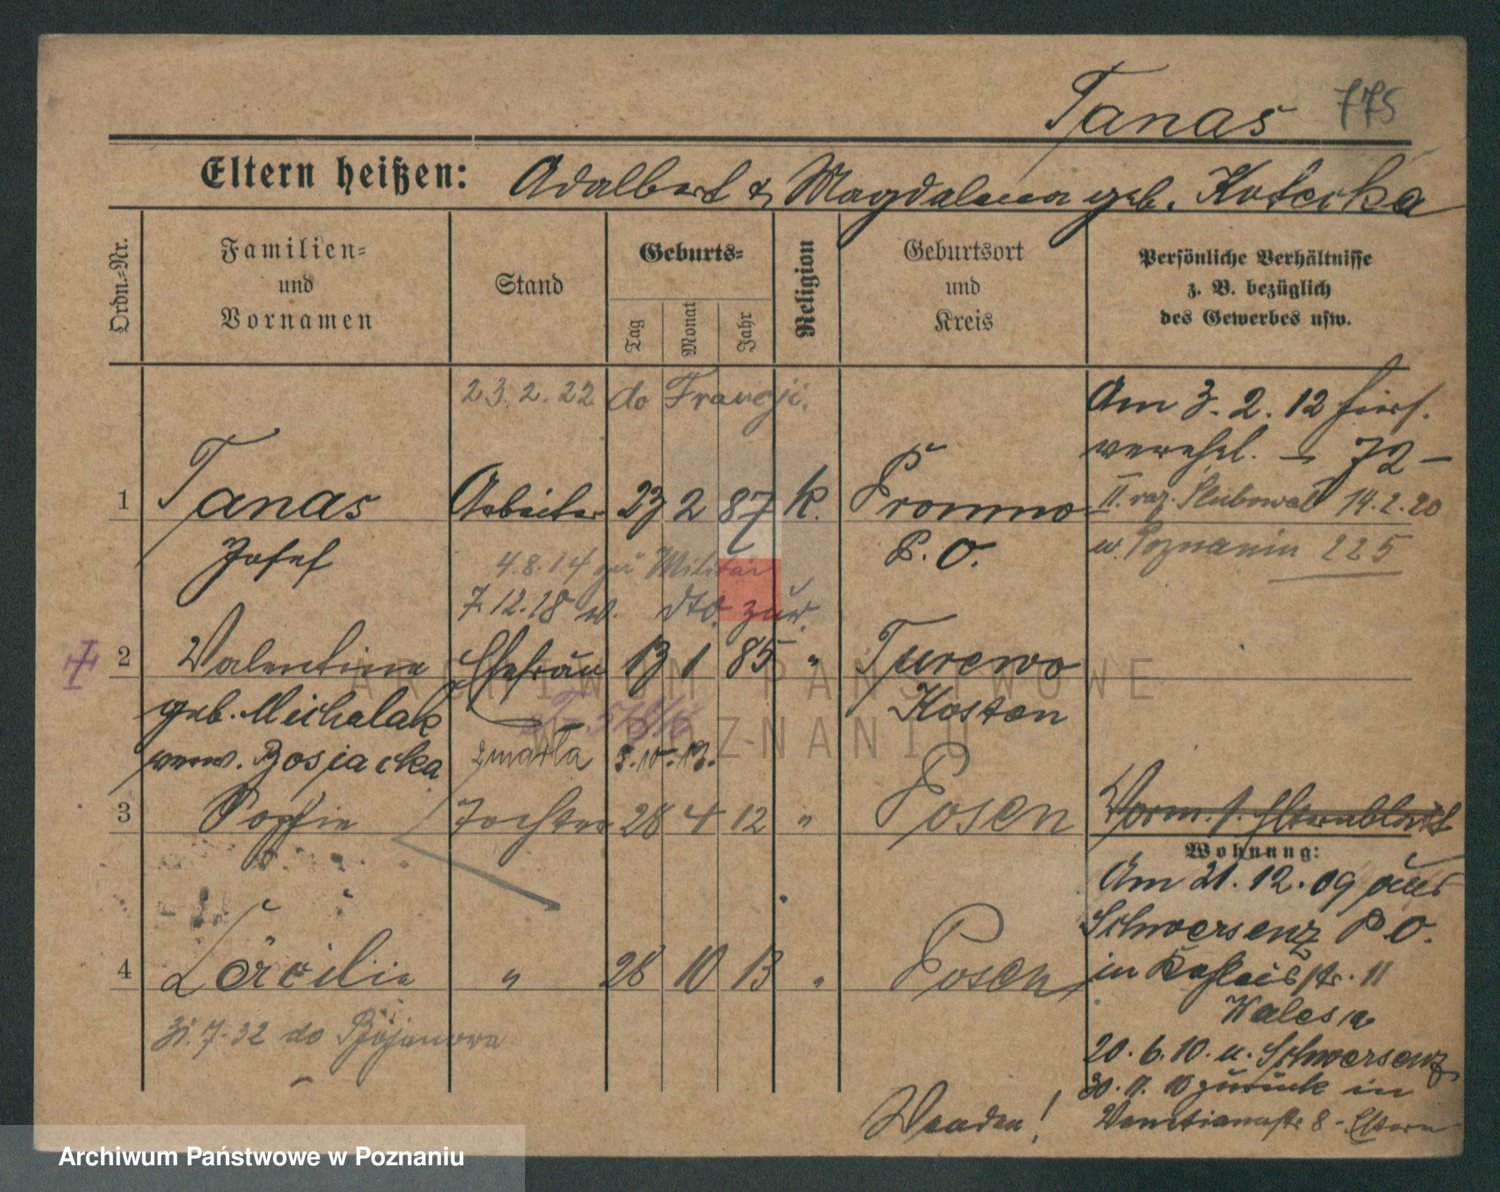 Tanas 775
Eltern heißen: Adalbert & Magdalena geb. Kotecka
Ordn.-Nr.
Familien-
und
Vornamen
Stand
Geburts-
Tag
Monat
Jahr
Religion
Geburtsort
und
Kreis
Persönliche Verhältnisse
z. B. bezüglich
des Gewerbes usw.
23.2.22 do Francji.
Am 3.2.12 hiers.
verehel. 72
1 Tanas Arbeiter 23 2 87 k.
II. raz. Ślubował 14.2.20
Josef P. O.
w Poznaniu 225
4.8.14 zu Militär
7.12.18 w. dto. zur.
2 Valentine Ehefrau 13 1 85 "Turewo
geb. Michalak Kosten
verw. Bosjacka zmarła 3.10.18.
3 Sophie Tochter 28 4 12 " Posen
Vorm. s. Elternblatt
Wohnung:
Am 21.12.09 aus
Schwersenz P. O.
4 Cäcilie " 28 10 13 " Posen
in 11
31.7.32 do Bojanowa
20.6.10. n. Schwersenz
30.11.10 zurück in
Venetianerstr 8 - Eltern
Wenden!
ARCHIWUM PAŃSTWOWE
W POZNANIU
Archiwum Państwowe w Poznaniu